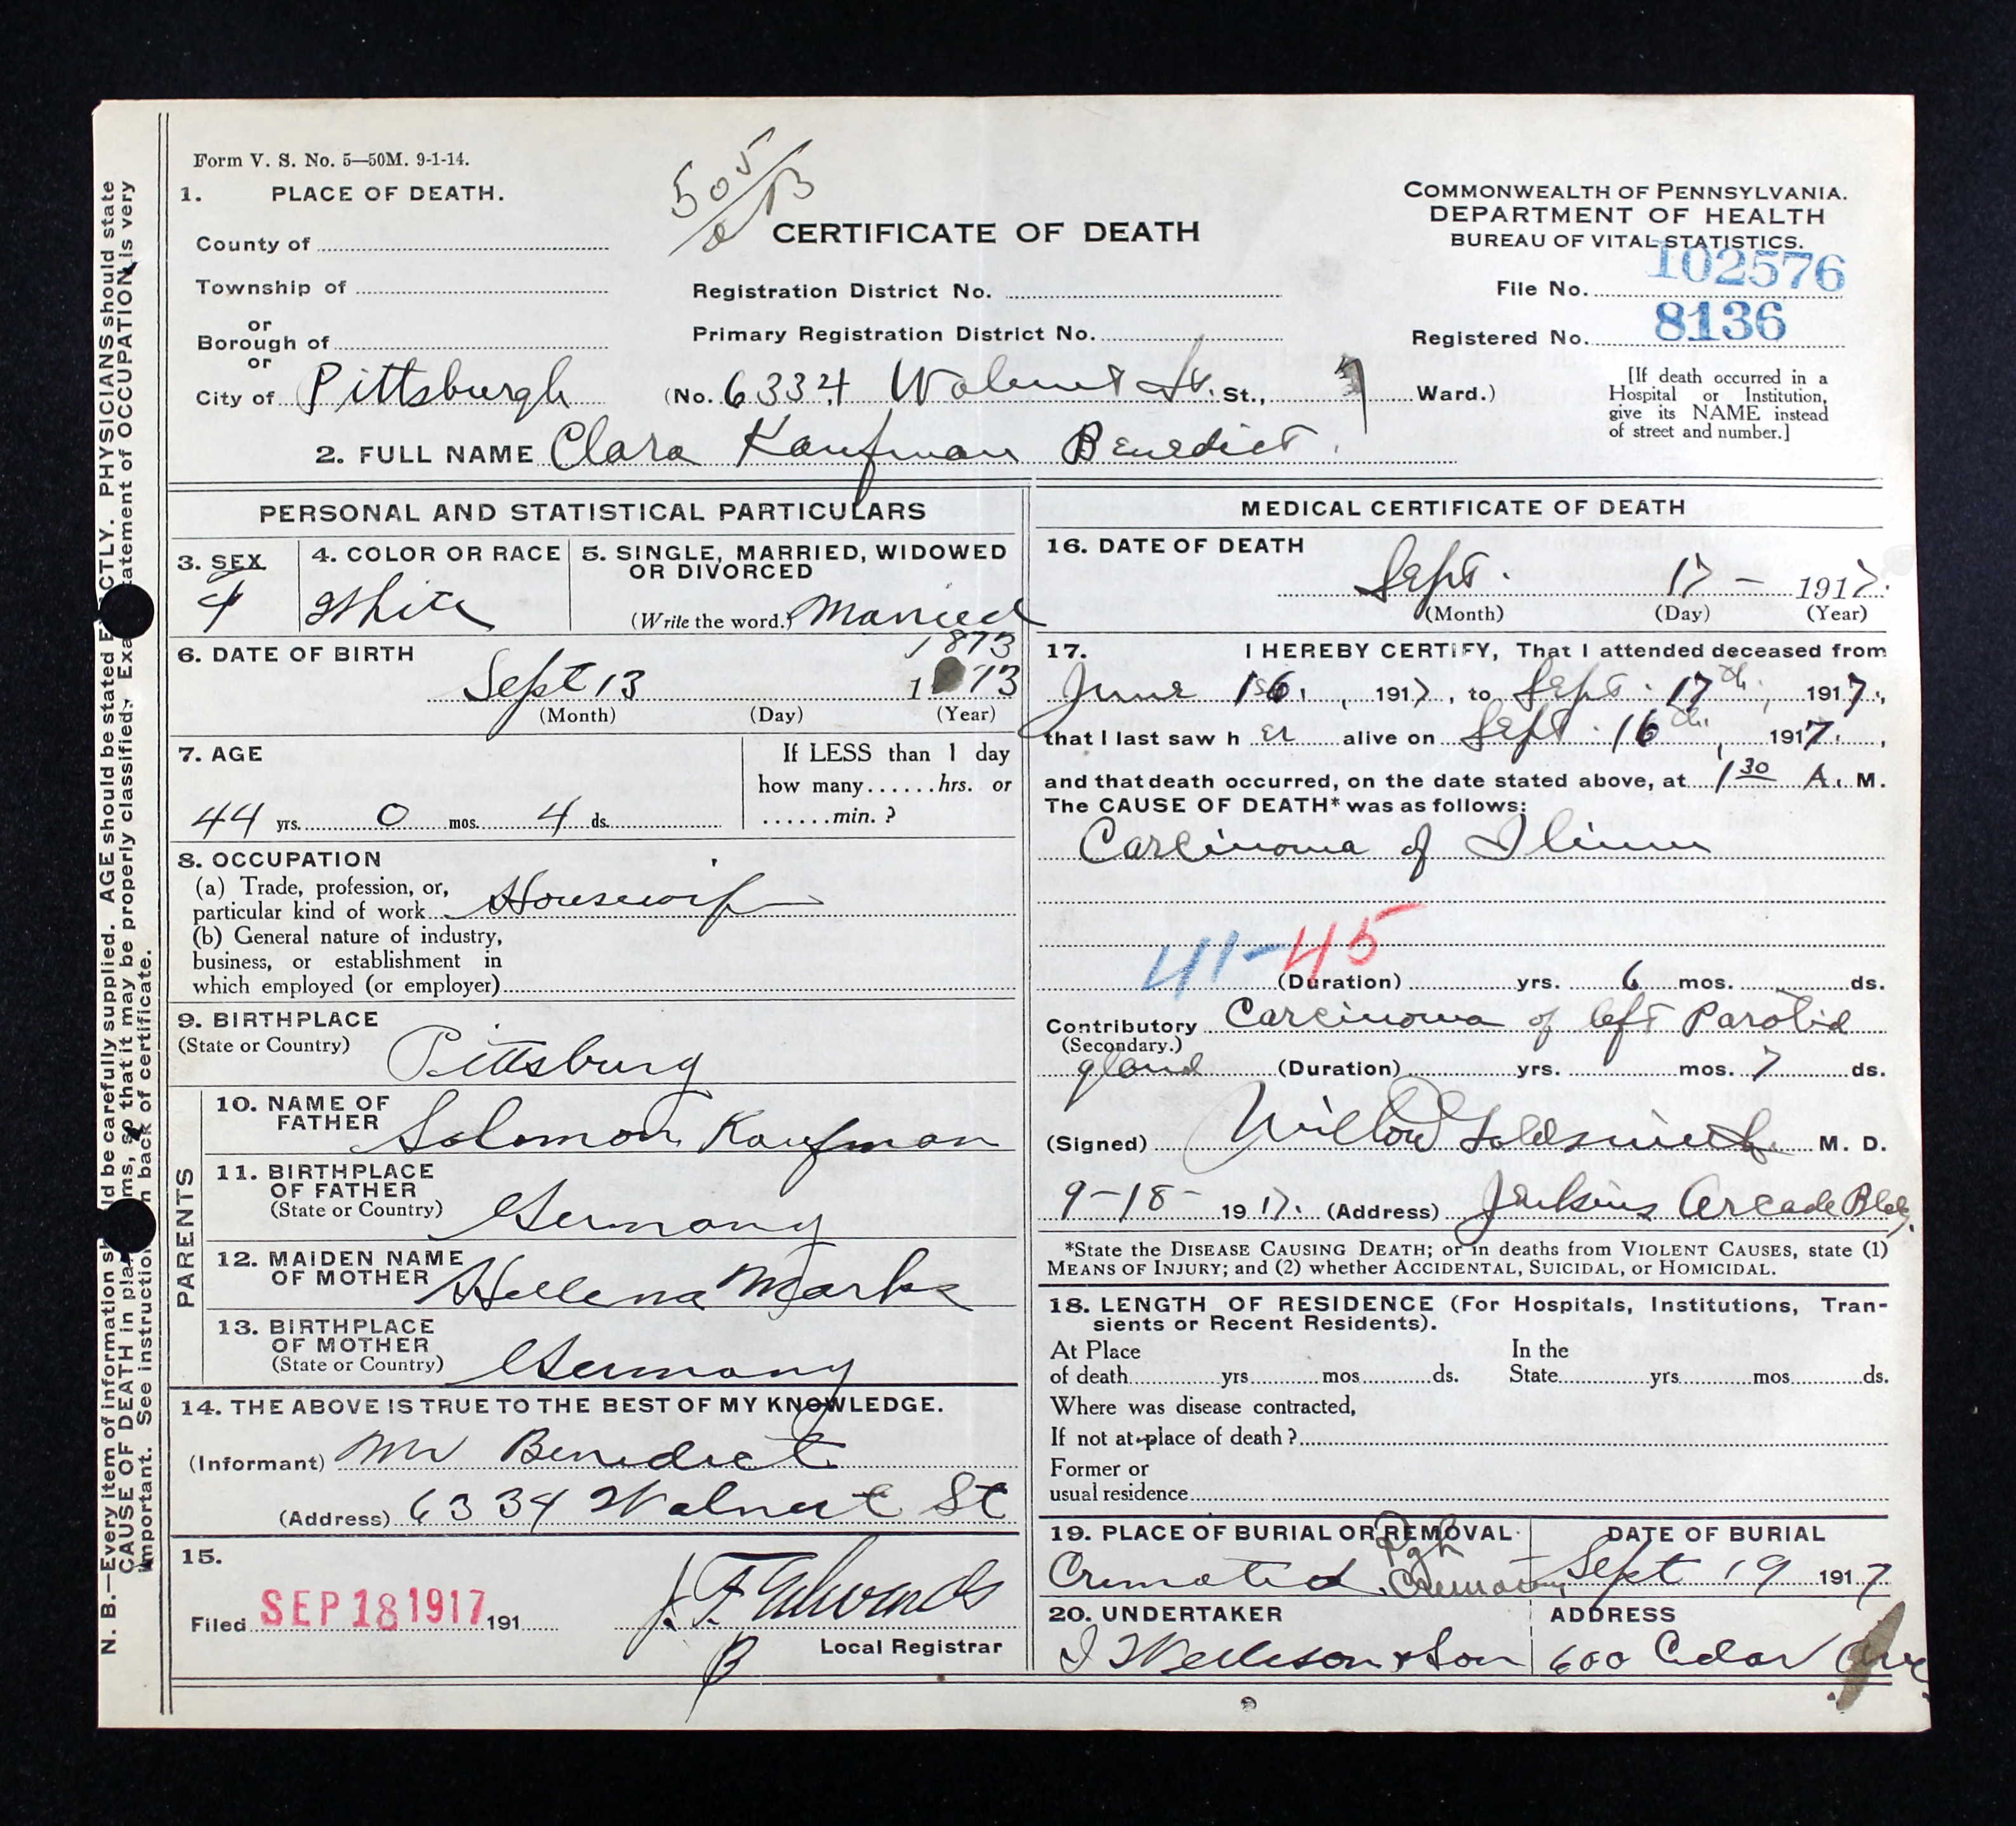 Form V. S. No. 5—50M. 9-1-14.
1. PLACE OF DEATH.
County of
Township of
or
Borough of
or
City of Pittsburgh
505
CERTIFICATE OF DEATH
Registration District No.
Primary Registration District No.
(No. 6334 Walnut St. St., 7 Ward.)
COMMONWEALTH OF PENNSYLVANIA.
DEPARTMENT OF HEALTH
BUREAU OF VITAL STATISTICS.
File No. 102576
Registered No. 8136
[If death occurred in a
Hospital or Institution,
give its NAME instead
of street and number.]
2. FULL NAME Clara Kaufman Benedict.
PERSONAL AND STATISTICAL PARTICULARS
3. SEX
F
4. COLOR OR RACE
White
5. SINGLE, MARRIED, WIDOWED
OR DIVORCED
(Write the word.) Married
6. DATE OF BIRTH
1873
Sept 13 1873
(Month) (Day) (Year)
7. AGE
44 yrs. 0 mos. 4 ds.
If LESS than 1 day
how many......hrs. or
......min. ?
8. OCCUPATION
(a) Trade, profession, or,
particular kind of work Housewife
(b) General nature of industry,
business, or establishment in
which employed (or employer)
9. BIRTHPLACE
(State or Country) Pittsburg
PARENTS
10. NAME OF
FATHER Solomon Kaufman
11. BIRTHPLACE
OF FATHER
(State or Country) Germany
12. MAIDEN NAME
OF MOTHER Hellena Marks
13. BIRTHPLACE
OF MOTHER
(State or Country) Germany
14. THE ABOVE IS TRUE TO THE BEST OF MY KNOWLEDGE.
(Informant) Mr Benedict
(Address) 6334 Walnut St
15.
Filed SEP 18 1917 191
J. F. Edwards
Local Registrar
MEDICAL CERTIFICATE OF DEATH
16. DATE OF DEATH
Sept. 17 – 1917.
(Month) (Day) (Year)
17. I HEREBY CERTIFY, That I attended deceased from
June 16, 1917, to Sept. 17th, 1917,
that I last saw h er alive on Sept. 16th, 1917,
and that death occurred, on the date stated above, at 1 30 A. M.
The CAUSE OF DEATH* was as follows:
Carcinoma of Ilium
41-45
(Duration) yrs. 6 mos. ds.
Contributory Carcinoma of left Parotid
(Secondary.)
gland (Duration) yrs. mos. 7 ds.
(Signed) Goldsmith M. D.
9-18- 1917. (Address) Jenkins Arcade Bldg.
*State the DISEASE CAUSING DEATH; or in deaths from VIOLENT CAUSES, state (1)
MEANS OF INJURY; and (2) whether ACCIDENTAL, SUICIDAL, or HOMICIDAL.
18. LENGTH OF RESIDENCE (For Hospitals, Institutions, Tran-
sients or Recent Residents).
At Place
of death yrs mos ds.
In the
State yrs mos ds.
Where was disease contracted,
If not at place of death ?
Former or
usual residence
19. PLACE OF BURIAL OR REMOVAL
Cremated Pgh
Crematory
DATE OF BURIAL
Sept 19 1917
20. UNDERTAKER
& Son
ADDRESS
600 Cedar Ave.
N. B.—Every item of information sh ld be carefully supplied. AGE should be stated E CTLY. PHYSICIANS should state
CAUSE OF DEATH in pla ms, so that it may be properly classified. Exa tatement of OCCUPATION is very
important. See instruction n back of certificate.